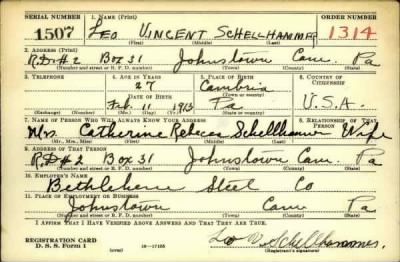 SERIAL NUMBER 1. NAME (Print) ORDER NUMBER
1507 LEO VINCENT SCHELLHAMMER 1314
(First) (Middle) (Last)
2. ADDRESS (Print)
R.D.# 2 Box 31 Johnstown Cam. Pa
(Number and street or R. F. D. number) (Town) (County) (State)
3. TELEPHONE 4. AGE IN YEARS 5. PLACE OF BIRTH 6. COUNTRY OF CITIZENSHIP
27 Cambria
DATE OF BIRTH (Town or county)
Feb. 11 1913 Pa U.S.A.
(Exchange) (Number) (Mo.) (Day) (Yr.) (State or country)
7. NAME OF PERSON WHO WILL ALWAYS KNOW YOUR ADDRESS 8. RELATIONSHIP OF THAT PERSON
Mrs. Catherine Rebecca Schellhammer Wife
(Mr., Mrs., Miss) (First) (Middle) (Last)
9. ADDRESS OF THAT PERSON
R.D.# 2 Box 31 Johnstown Cam. Pa
(Number and street or R. F. D. number) (Town) (County) (State)
10. EMPLOYER'S NAME
Bethlehem Steel Co
11. PLACE OF EMPLOYMENT OR BUSINESS
Johnstown Cam Pa
(Number and street or R. F. D. number) (Town) (County) (State)
I AFFIRM THAT I HAVE VERIFIED ABOVE ANSWERS AND THAT THEY ARE TRUE.
REGISTRATION CARD Leo V. Schellhammer
D. S. S. Form 1 16—17105 (Registrant's signature)